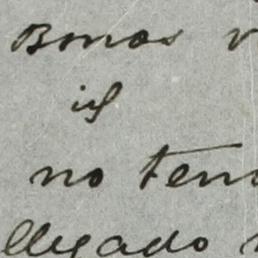 Bonos v
no tene
llegado